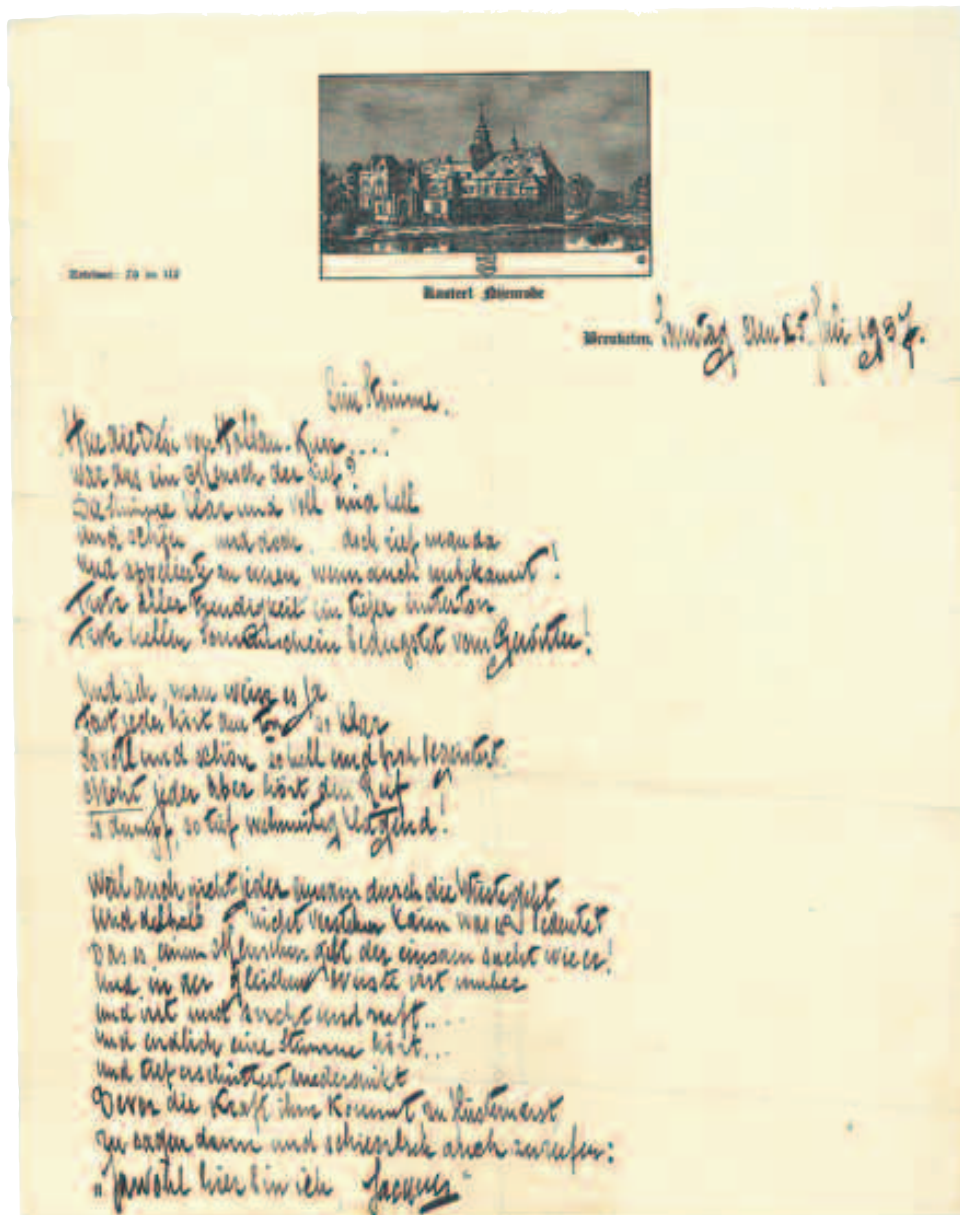 Telefoon: 29 en 112
Kasteel Nijenrode
Breukelen, Sonntag den 25. Juli 1937.
Eine Stimme.
Hier die Desi von Halban-Kurz ...."
war das ein Mensch der rief?
Die Stimme klar und voll und hell
und schön und doch .. doch rief man da
und appelierte an einen wenn auch unbekannt!
Trotz aller Freudigkeit ein tiefer Unterton
Trotz hellen Sonnenschein beängstet vom Gewitter!
Und ich, man weiss es ja
Fast jeder hört den Ton so klar
So voll und schön so hell und froh
Nicht jeder aber hört den Ruf
So dumpf, so tief wehmütig klagend!
Weil auch nicht jeder einsam durch die Wüste geht
und deshalb nicht verstehen kann was es bedeutet
Das es einen Menschen gibt der einsam sucht wie er!
Und in der gleichen Wüste irrt umher
und irrt und sucht und ruft....
Und endlich eine Stimme hört...
und tief erschüttert niedersinkt
Bevor die Kraft ihm kommt zu flüstern erst
zu sagen dann und schliesslich auch zu rufen:
"Jawohl hier bin ich Jacques"